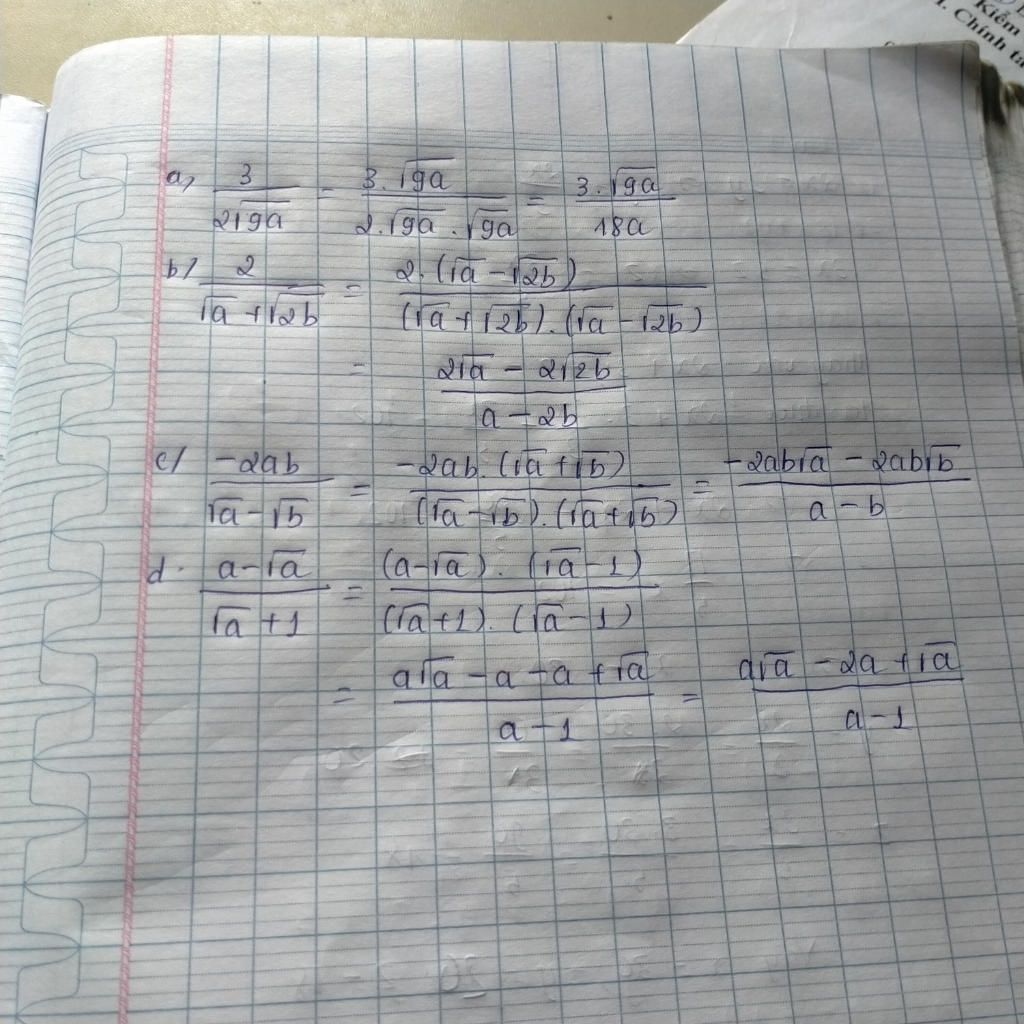 Kiểm
1. Chính tả
a, 3/(2√9a) = (3.√9a)/(2.√9a.√9a) = (3.√9a)/(18a)
b/ 2/(√a+√2b) = (2.(√a-√2b))/((√a+√2b).(√a-√2b))
= (2√a - 2√2b)/(a-2b)
c/ (-2ab)/(√a-√b) = (-2ab.(√a+√b))/((√a-√b).(√a+√b)) = (-2ab√a - 2ab√b)/(a-b)
d. (a-√a)/(√a+1) = ((a-√a).(√a-1))/((√a+1).(√a-1))
= (a√a - a - a + √a)/(a-1) = (a√a - 2a + √a)/(a-1)